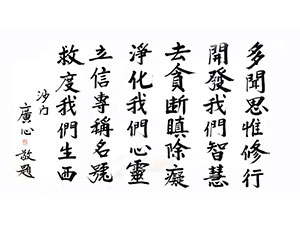 多聞思惟修行
開發我們智慧
去貪斷瞋除癡
淨化我們心靈
立信專稱名號
救度我們生西
沙門
廣心
敬題